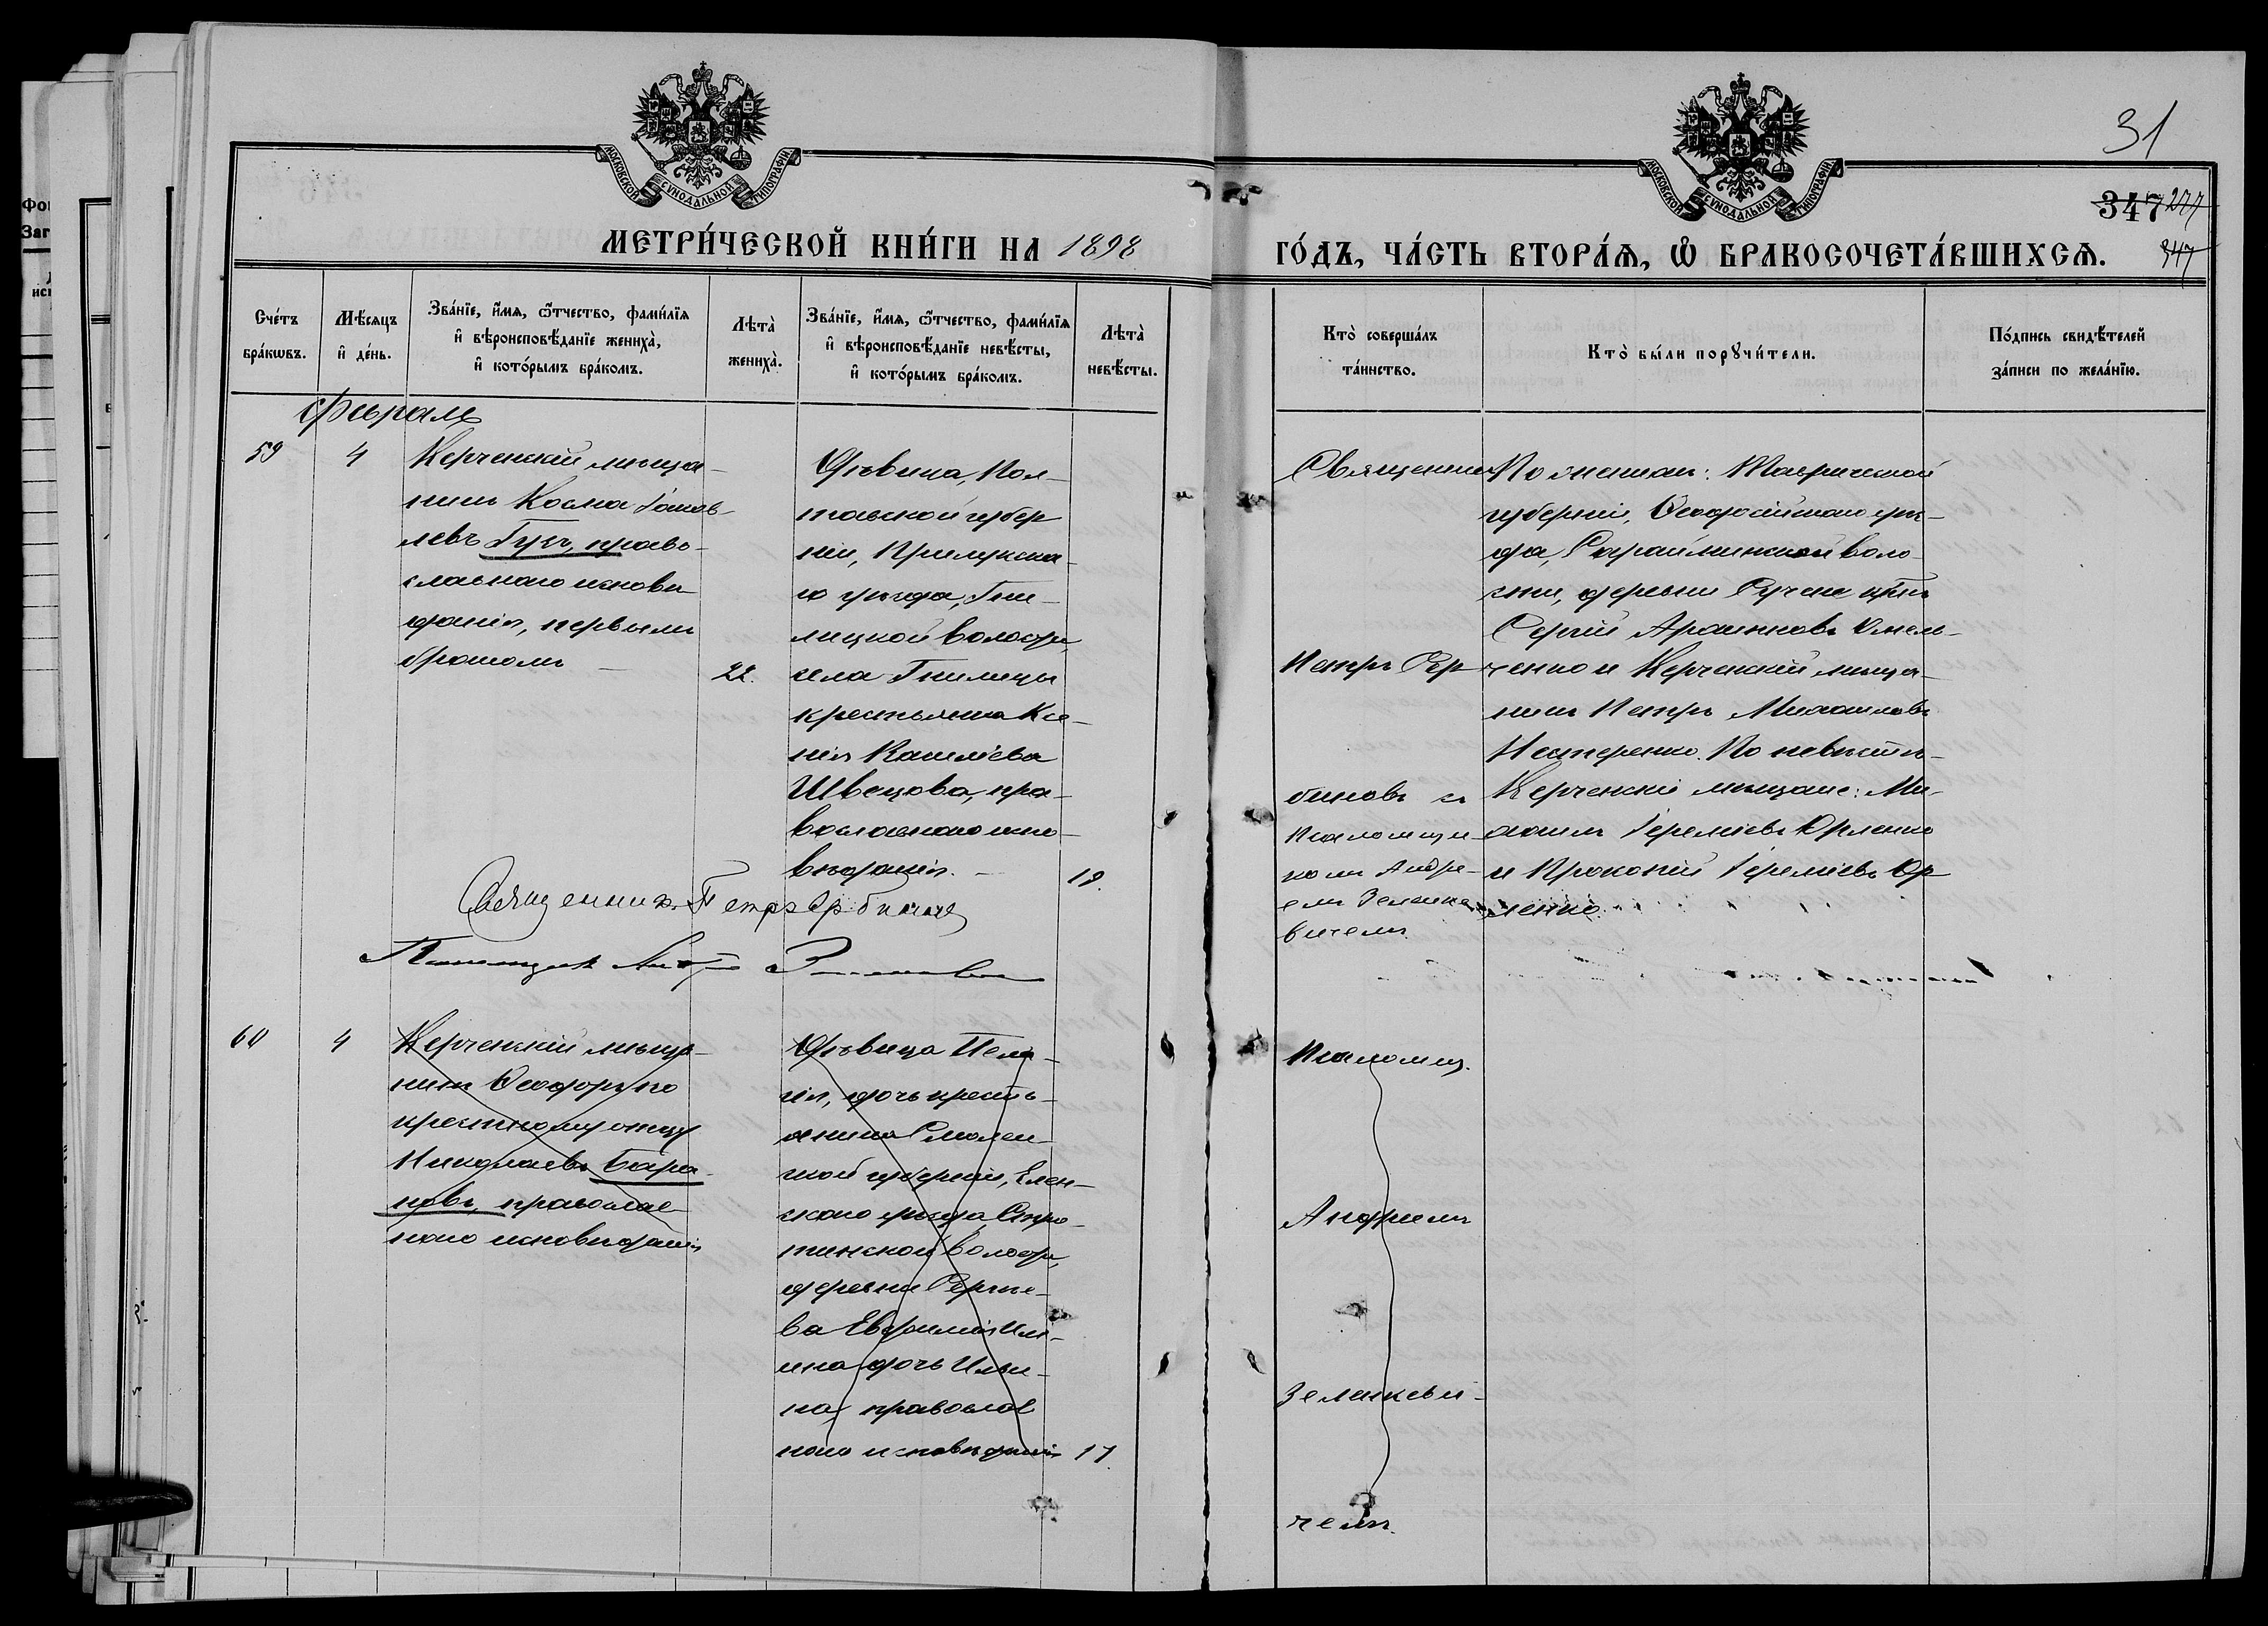 31
МОСКОВСКОЙ СѴНОДАЛЬНОЙ ТИПОГРАФІИ
МОСКОВСКОЙ СѴНОДАЛЬНОЙ ТИПОГРАФІИ
347 277
347
МЕТРИ́ЧЕСКОЙ КНИ́ГИ НА 1898
ГО́ДЪ, ЧА́СТЬ ВТОРА́Ѧ, Ѡ҆ БРАКОСОЧЕТА́ВШИХСѦ.
Сче́тъ
бра́кѡвъ.
Мѣ́сяцъ
и҆ де́нь.
Зва́нїе, и҆́мя, ѻ҆́тчество, фами́лїя
и҆ вѣроисповѣ́данїе жениха̀,
и҆ кото́рымъ бра́комъ.
Лѣта̀
жениха̀.
Зва́нїе, и҆́мя, ѻ҆́тчество, фами́лїя
и҆ вѣроисповѣ́данїе невѣ́сты,
и҆ кото́рымъ бра́комъ.
Лѣта̀
невѣ́сты.
Кто̀ соверша́лъ
та́инство.
Кто̀ бы́ли порꙋчи́тели.
По́дпись свидѣ́телей
за́писи по жела́нїю.
Февраль
59
4
Керченскій мѣща-
нинъ Косма Іаков-
левъ Гузъ, право-
славнаго исповѣ
данія, первымъ
бракомъ
22.
Дѣвица, Пол-
тавской губер
ніи, Прилукска-
го уѣзда, Гни-
лицкой волости,
села Гнилицы
крестьянка Ксе-
нія
Швецова, пра-
вославнаго испо-
вѣданія.
19.
Священникъ
Петръ Сер
биновъ съ
Псаломщи-
комъ Андре-
емъ Зелинке-
вичемъ.
По женихѣ: Таврической
губерніи, Ѳеодосійскаго уѣз-
да, Сарайминской воло-
сти, деревни
Сергій Омель-
ченко и Керченскій мѣща-
нинъ Петръ Михаиловъ
Нестеренко. По невѣстѣ-
Керченскіе мѣщане: Ми-
хаилъ Іереміевъ Орленко
и Прокопій Іереміевъ Ор
ленко.
Священникъ Петръ Сербиновъ
Псаломщикъ Андрей
60
4
Керченскій мѣща-
нинъ Ѳеодоръ по
крестному отцу
Николаевъ Бара-
новъ, православ-
наго исповѣданія
Дѣвица Пела-
гія, дочь кресть-
янина Смолен-
ской губерніи, Елен-
скаго уѣзда,
волости,
деревни Сергѣе-
ва
дочь Ильи-
на, православ
наго исповѣданія
17.
Псаломщ.
Андреемъ
Зелинкеви-
чемъ.